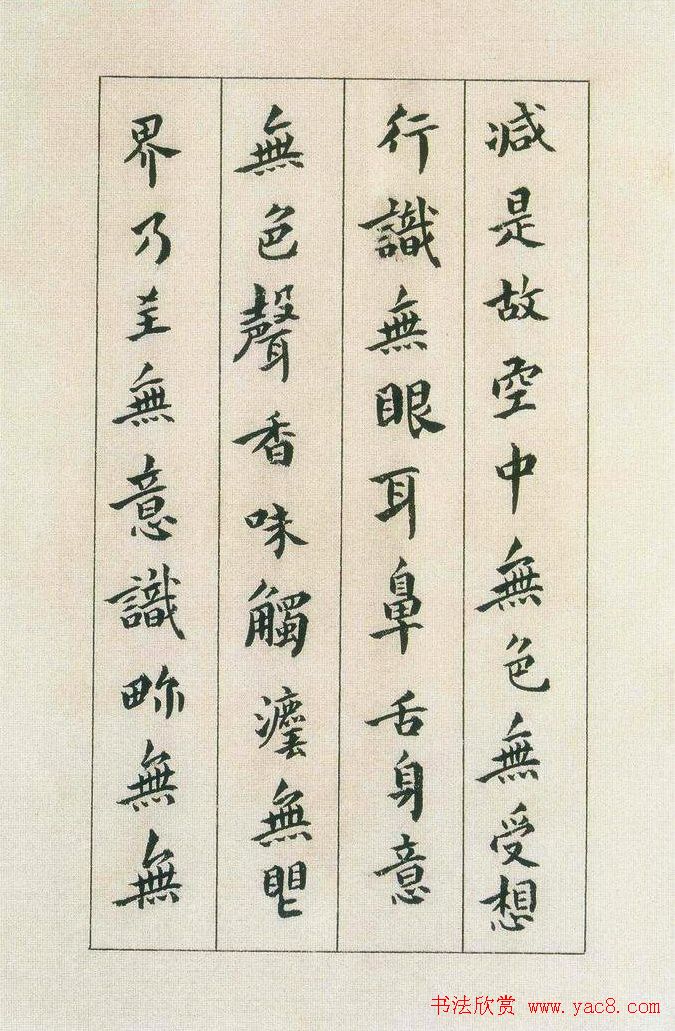 減是故空中無色無受想
行識無眼耳鼻舌身意
無色聲香味觸灋無
界乃至無意識畍無無
书法欣赏 www.yac8.com